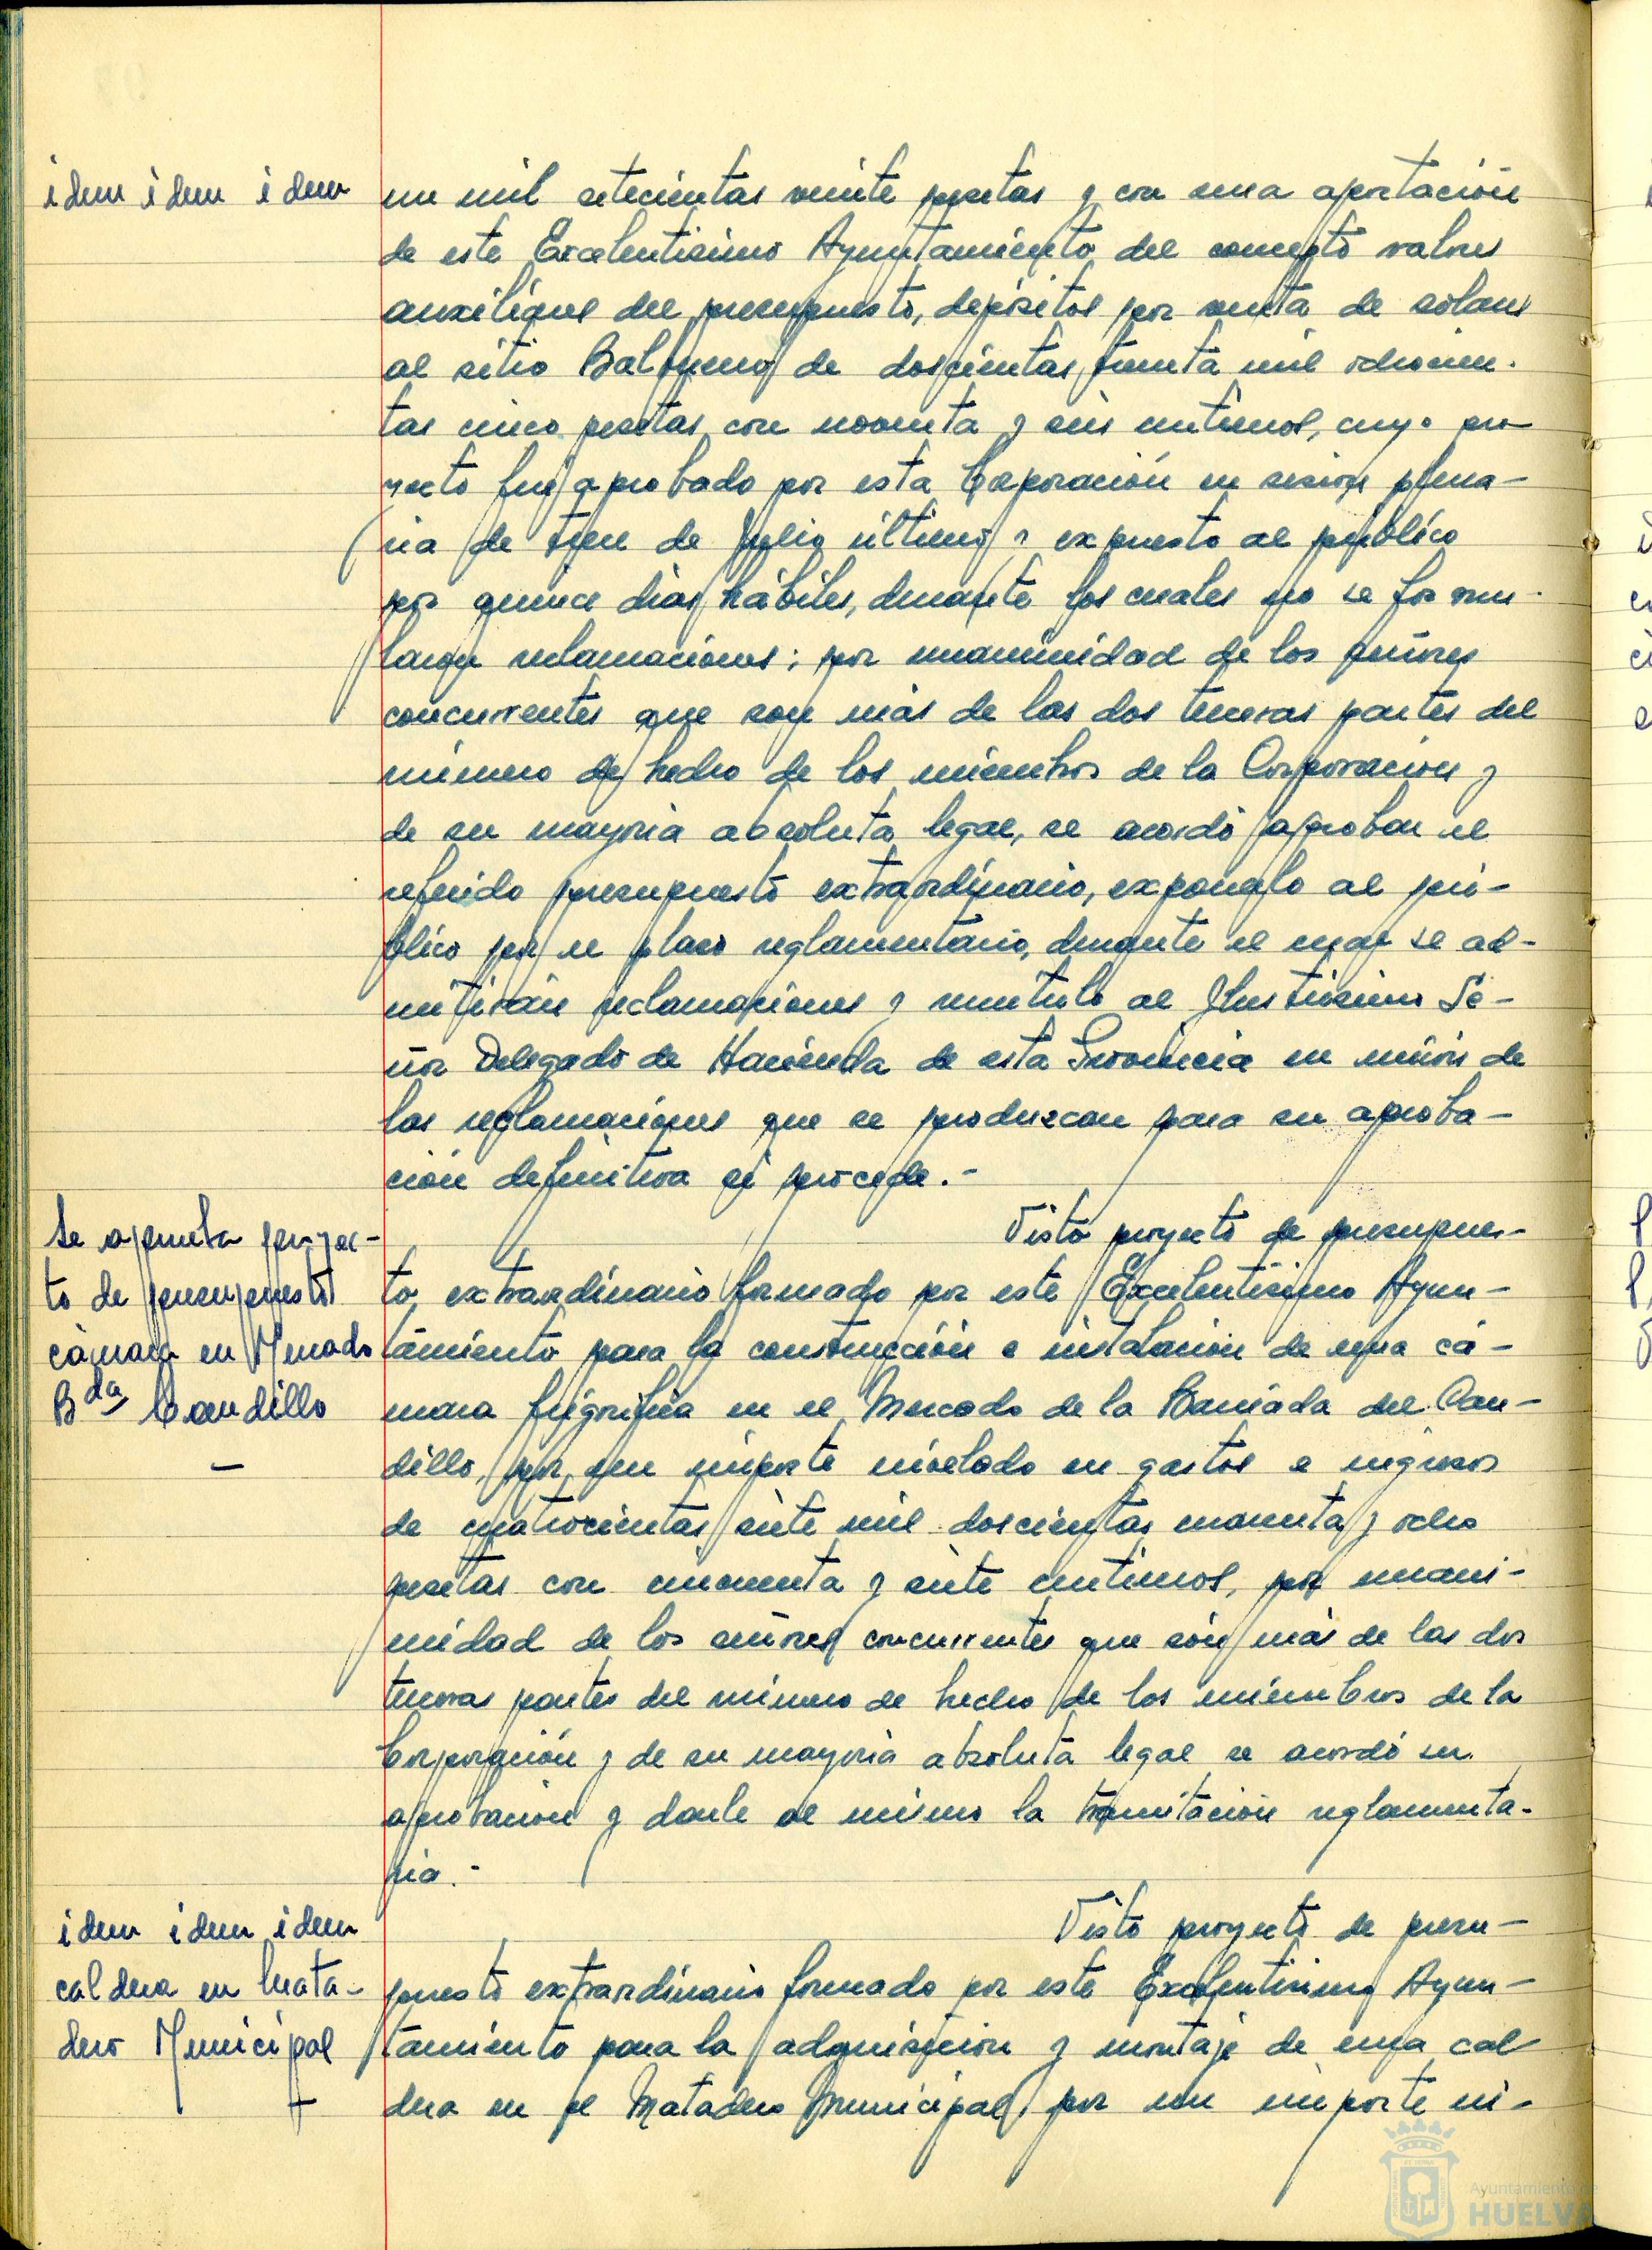 idem idem idem
un mil setecientas veinte pesetas y con una aportación
de este Excelentísimo Ayuntamiento del concepto valores
auxiliares del presupuesto, depósitos por venta de solares
al sitio Balbueno de doscientas treinta mil ochocien-
tas cinco pesetas con noventa y seis céntimos, cuyo pro-
yecto fué aprobado por esta Corporación en sesión plena-
ria de trece de Julio último y expuesto al público
por quince dias hábiles, durante los cuales no se formu-
laron reclamaciones; por unanimidad de los señores
concurrentes que son más de las dos terceras partes del
número de hecho de los miembros de la Corporación y
de su mayoria absoluta legal, se acordó aprobar el
referido presupuesto extraordinario, exponerlo al pú-
blico por el plazo reglamentario, durante el cual se ad-
mitirán reclamaciones y remitirlo al Ilustrisimo Se-
ñor Delegado de Hacienda de esta Provincia en unión de
las reclamaciones que se produzcan para su aproba-
ción definitiva si procede.-
Se aprueba proyec-
to de presupuesto
cámara en Mercado
Bda Caudillo
Visto proyecto de presupues-
to extraordinario formado por este Excelentísimo Ayun-
tamiento para la construcción e instalación de una cá-
mara frigorífica en el Mercado de la Barriada del Cau-
dillo, por un importe nivelado en gastos e ingresos
de cuatrocientas siete mil doscientas cuarenta y ocho
pesetas con cincuenta y siete céntimos, por unani-
midad de los señores concurrentes que són más de las dos
terceras partes del número de hecho de los miembros de la
Corporación y de su mayoria absoluta legal se acordó su
aprobación y darle al mismo la tramitación reglamenta-
ria.-
idem idem idem
caldera en Mata-
dero Municipal
Visto proyecto de presu-
puesto extraordinario formado por este Excelentísimo Ayun-
tamiento para la adquisición y montaje de una cal-
dera en el Matadero Municipal, por un importe ni-
Ayuntamiento de
HUELVA